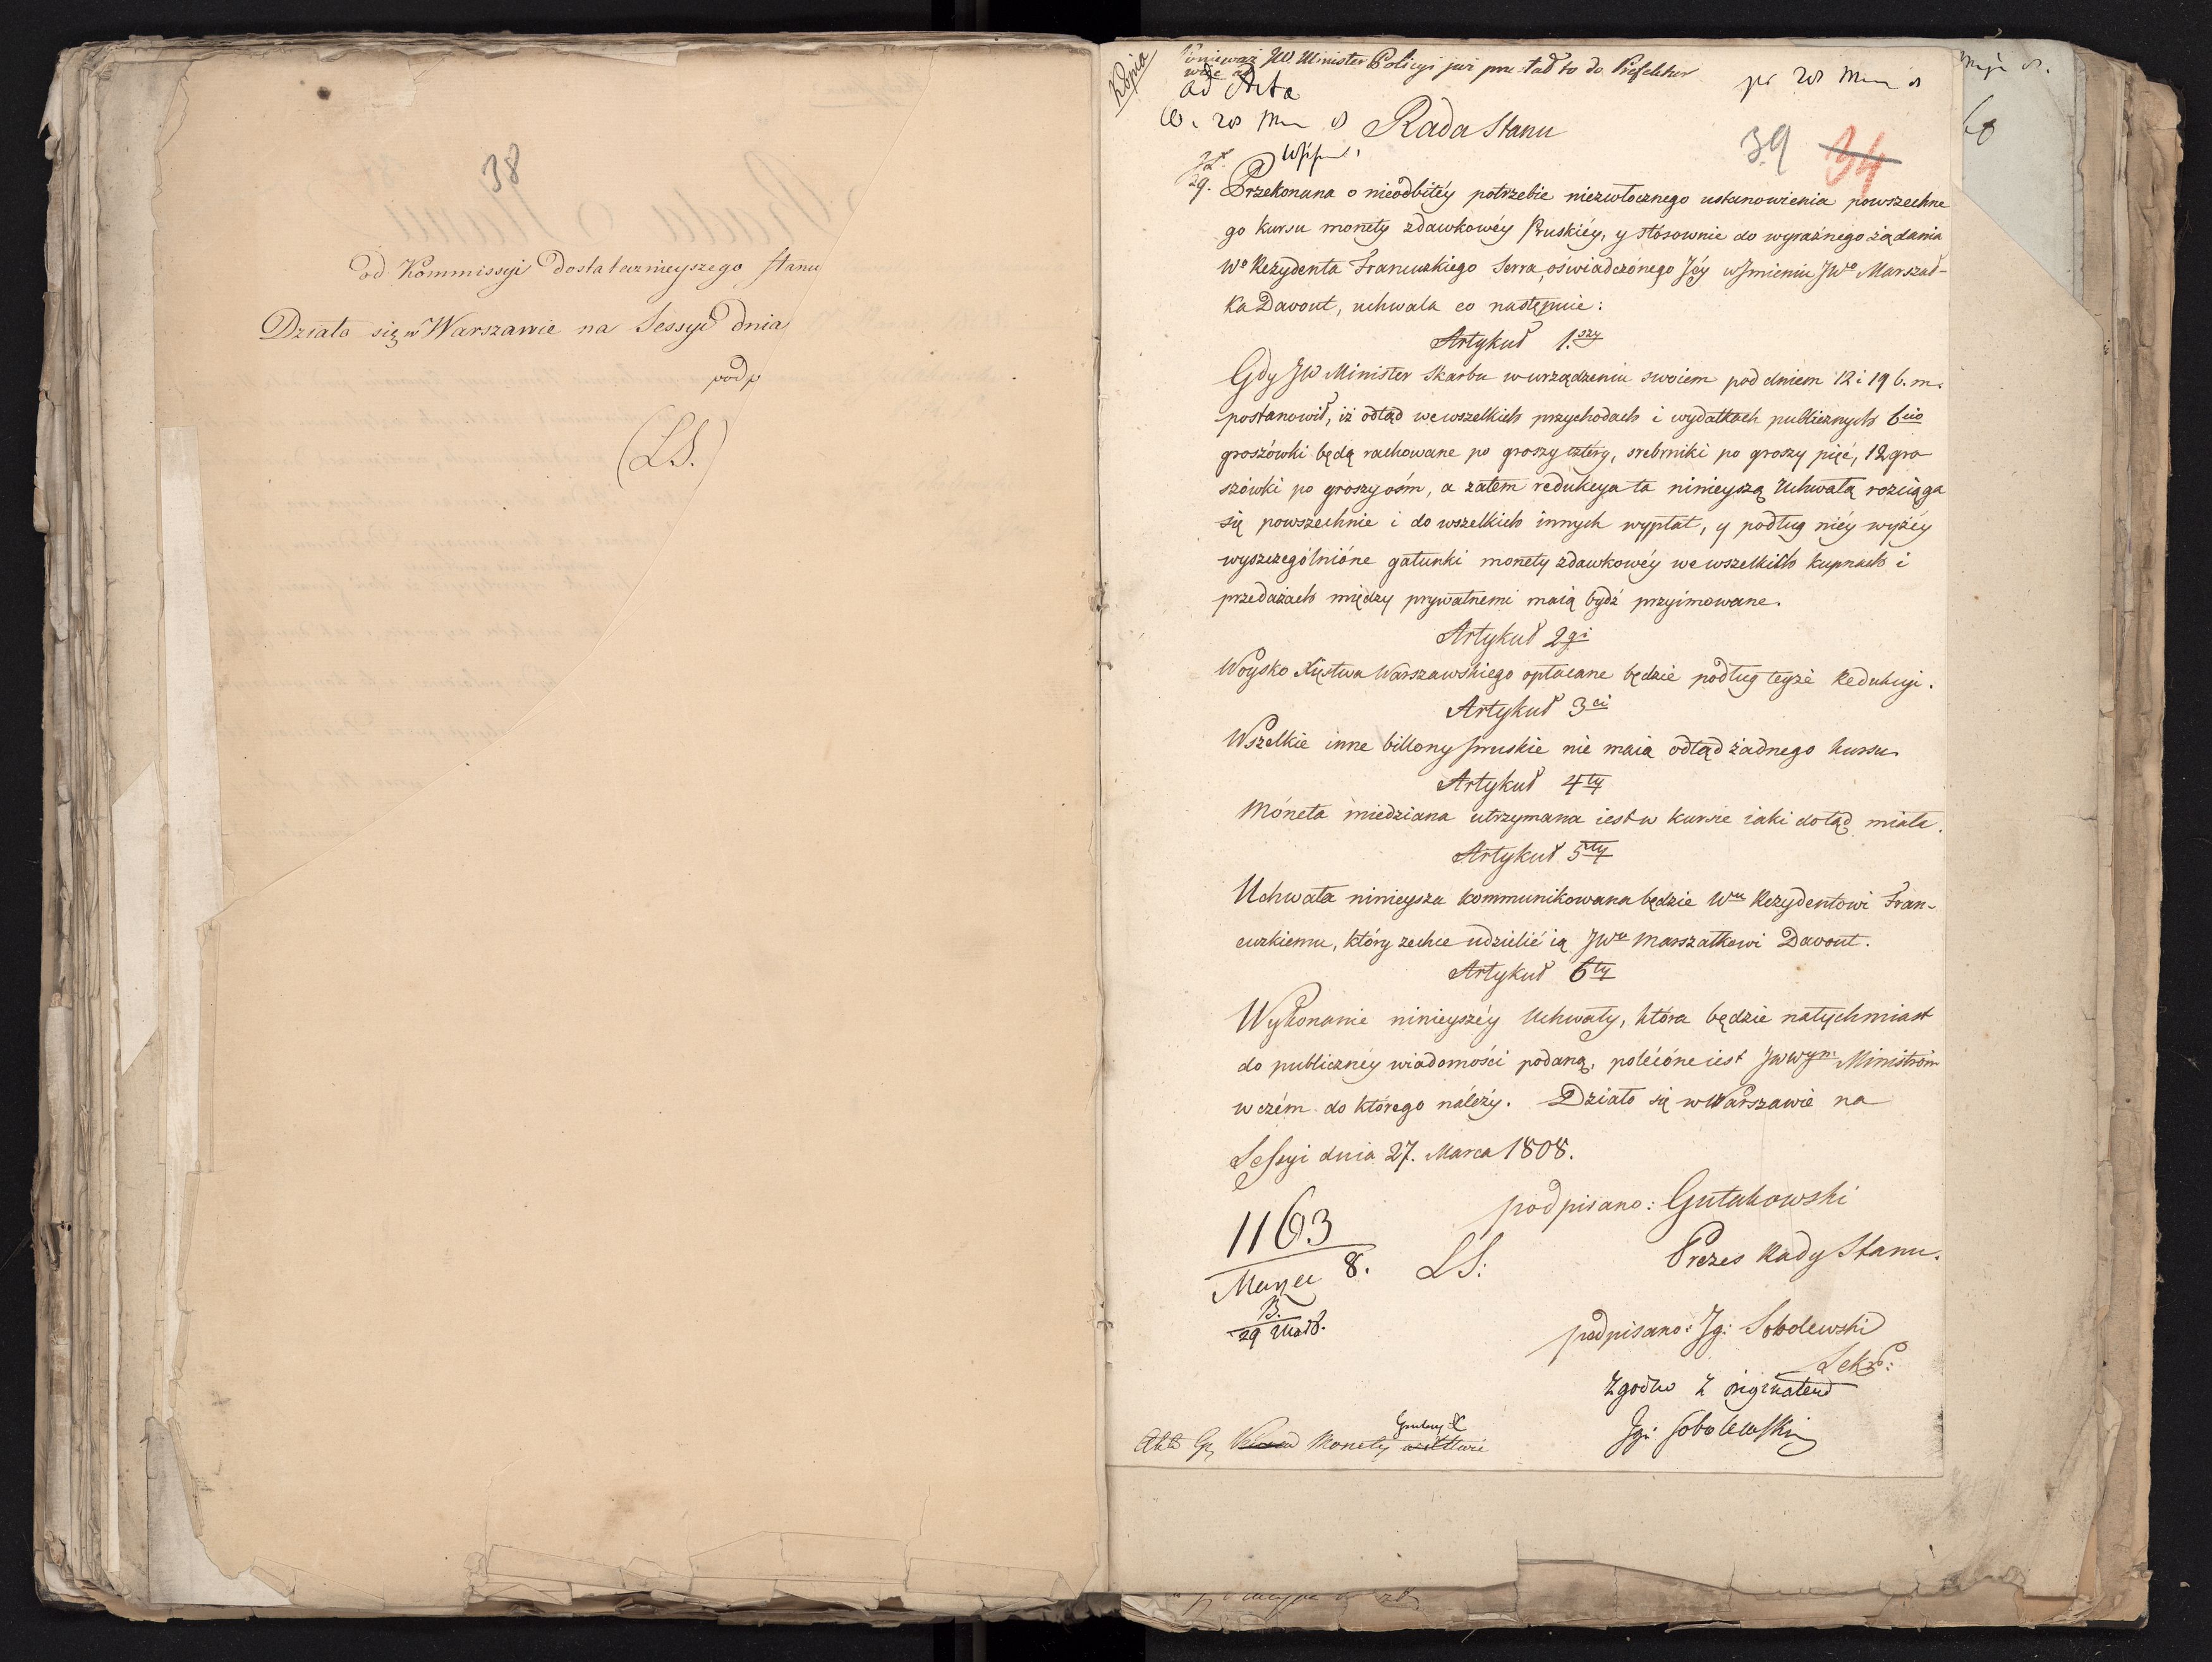 38
od Kommissyi dostatecznieyszego stanu
Działo się w Warszawie na Sessyi dnia
podp
(LS.)
Kopia
Ponieważ JW. Minister Policyi już to do Prefektur
ad Acta
Rada Stanu
39 34
29. Przekonana o nieodbitéy potrzebie niezwłocznego ustanowienia powszechne
go kursu monety zdawkowéy Pruskiéy, y stósownie do wyraźnego żądania
Wo Rezydenta Francuzkiego Serra, oświadczonego Jéy w Jmieniu JWo Marszał-
ka Davout, uchwala co następuie:
Artykuł 1.szy
Gdy JW Minister Skarbu w urządzeniu swoiem pod dniem 12 i 19 b. m.
postanowił, iż odtąd we wszelkich przychodach i wydatkach publicznych 6cio
groszówki będą rachowane po groszy cztéry, srebrniki po groszy pięć, 12 gro
szówki po groszy ośm, a zatem redukcya ta ninieyszą Uchwałą rozciąga
się powszechnie i do wszelkich innych wypłat, y podług niéy wyżéy
wyszczególnióne gatunki monety zdawkowéy we wszelkich kupnach i
przedażach między prywatnemi maią bydź przyimowane.
Artykuł 2gi
Woysko Xięstwa Warszawskiego opłacane będzie podług teyże Redukcyi.
Artykuł 3ci
Wszelkie inne billony pruskie nie maią odtąd żadnego kursu.
Artykuł 4ty
Móneta miedziana utrzymana iest w kursie iaki dotąd miała.
Artykuł 5ty
Uchwała ninieysza kommunikowana będzie Wu Rezydentowi Fran-
cuzkiemu, który zechce udzielić ią JWu Marszałkowi Davout.
Artykuł 6ty
Wykonanie ninieyszéy Uchwały, która będzie natychmiast
do publicznéy wiadomości podaną, polécóne iest JWWym Ministróm
w czém do którego náleży. Działo się w Warszawie na
Sessyi dnia 27. Marca 1808.
podpisano: Gutakowski
1163
Prezes Rady Stanu.
Marca 8. LS:
B.
29 Mar 8.
podpisano: Jg: Sobolewski
Sekr:
Zgodno z originałem
Jgn: Sobolewski
Akta Monety